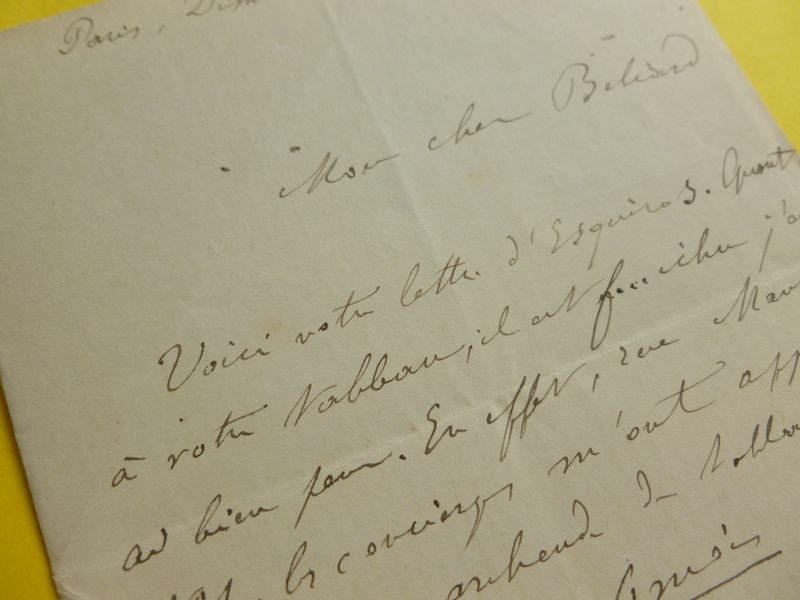 Paris, Dim
Mon cher Béliard
Voici votre lettre d'Esquiros. Quant
à votre tableau, il est fichu j'a
ai bien peur. En effet, rue Mau
les concierges m'ont app
marchand de tablea